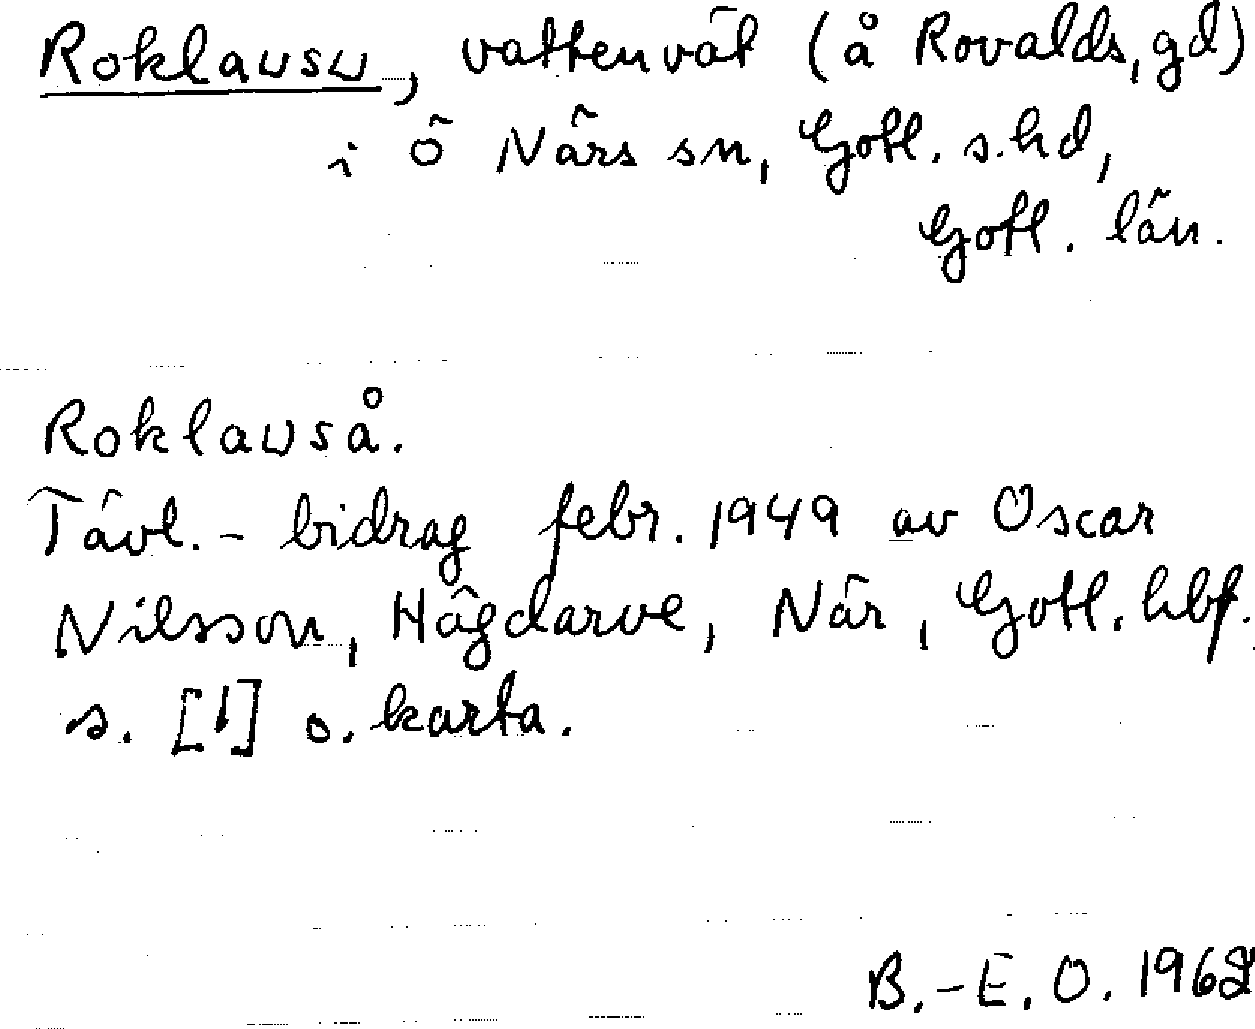 Roklausu, vattenvät (å Rovalds, gd)
i ö När sn, Gotl. s. hd,
Gotl. län.
Roklauså.
Tävl.- bidrag febr. 1949 av Oscar
Nilsson, Högdarve, När, Gotl. hbf.
s. [1] o. karta.
B.-E. O. 1962